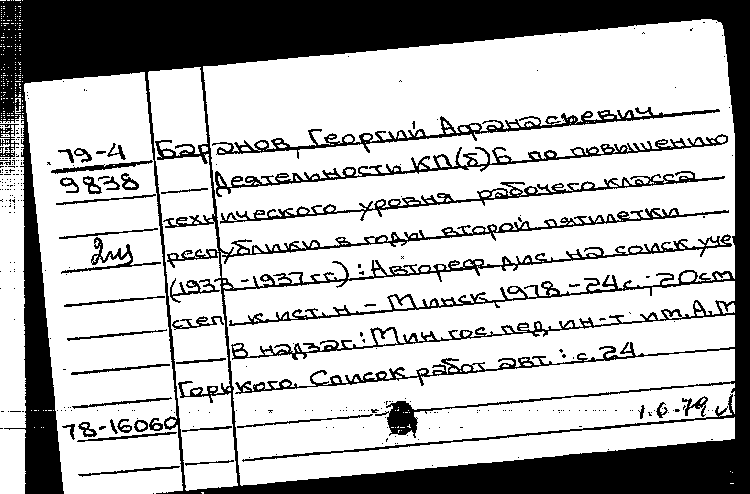 79-4 Баранов, Георгий Афанасьевич.
9838 Деятельность КП(б)Б по повышению
технического уровня рабочего класса
республики в годы второй пятилетки
(1933-1937 гг.) : Автореф. дис. на соиск. уче
степ. к. ист. н. - Минск, 1978. - 24 с.; 20 см
В надзаг.: Мин. гос. пед. ин-т им. А. М
Горького. Список работ авт.: с. 24.
78-16060
1.6.79